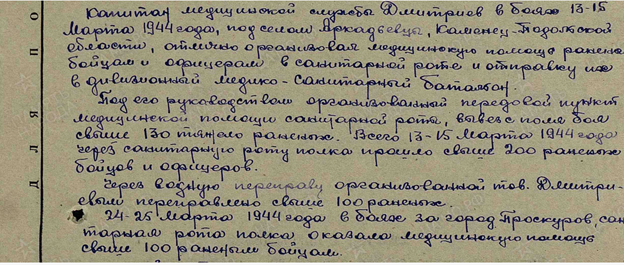 Капитан медицинской службы Дмитриев в боях 13-15
Марта 1944 года, под селом Аркадьевцы, Каменец-Подольской
области, отлично организовал медицинскую помощь ранен
бойцам и офицерам в санитарной роте и отправку их
в дивизионный медико-санитарный баталион.
Под его руководством организованной передовой пункт
медицинской помощи санитарной роты, вывез с поля боя
свыше 130 тяжело раненых. Всего 13-15 Марта 1944 года
через санитарную роту полка прошло свыше 200 раненых
бойцов и офицеров.
Через водную переправу организованной тов. Дмитри-
евым переправлено свыше 100 раненых.
24-25 Марта 1944 года в боях за город Проскуров, сан
тарная рота полка оказала медицинскую помощь
свыше 100 раненым бойцам.
Д Л Я П О